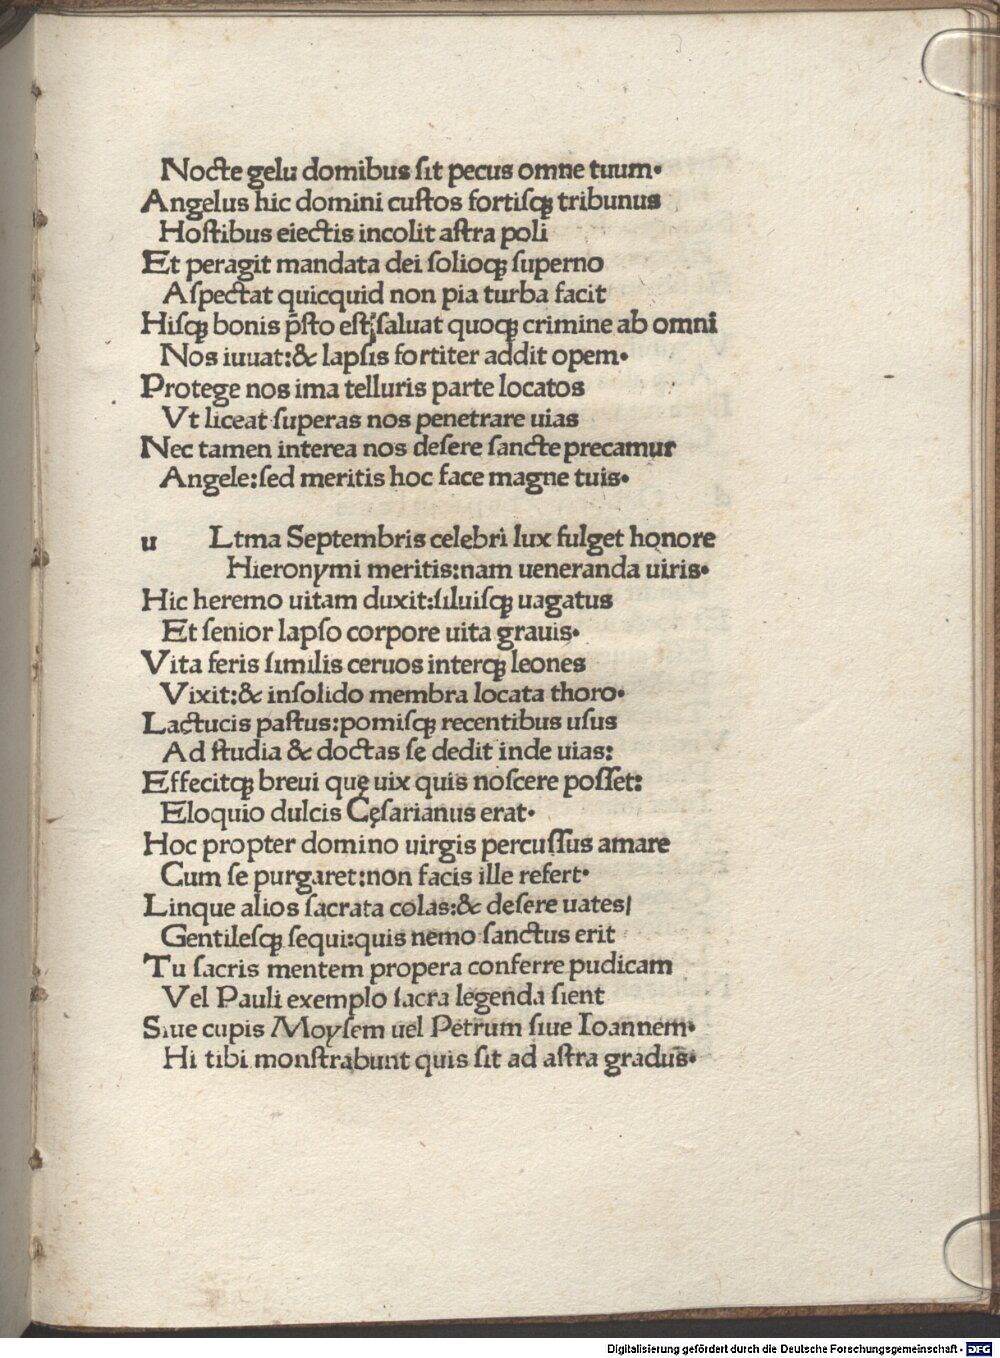 Nocte gelu domibus ſit pecus omne tuum•
Angelus hic domini cuſtos fortiſqꝫ tribunus
Hoſtibus eiectis incolit aſtra poli
Et peragit mandata dei ſolioqꝫ ſuperno
Aſpectat quicquid non pia turba facit
Hiſqꝫ bonis p̄ſto eſt;ſaluat quoqꝫ crimine ab omni
Nos iuuat:& lapſis fortiter addit opem•
Protege nos ima telluris parte locatos
Vt liceat ſuperas nos penetrare uias
Nec tamen interea nos deſere ſancte precamur
Angele:ſed meritis hoc face magne tuis•
u Ltma Septembris celebri lux fulget honore
Hieronymi meritis:nam ueneranda uiris•
Hic heremo uitam duxit:ſiluiſqꝫ uagatus
Et ſenior lapſo corpore uita grauis•
Vita feris ſimilis ceruos interqꝫ leones
Vixit:& inſolido membra locata thoro•
Lactucis paſtus:pomiſqꝫ recentibus uſus
Ad ſtudia & doctas ſe dedit inde uias:
Effecitqꝫ breui quę uix quis noſcere poſſet:
Eloquio dulcis Cęſarianus erat•
Hoc propter domino uirgis percuſſus amare
Cum ſe purgaret:non facis ille refert•
Linque alios ſacrata colas:& deſere uates/
Gentileſqꝫ ſequi:quis nemo ſanctus erit
Tu ſacris mentem propera conferre pudicam
Vel Pauli exemplo ſacra legenda ſient
Siue cupis Moyſem uel Petrum ſiue Ioannem•
Hi tibi monſtrabunt quis ſit ad aſtra gradus•
Digitalisierung gefördert durch die Deutsche Forschungsgemeinschaft - DFG